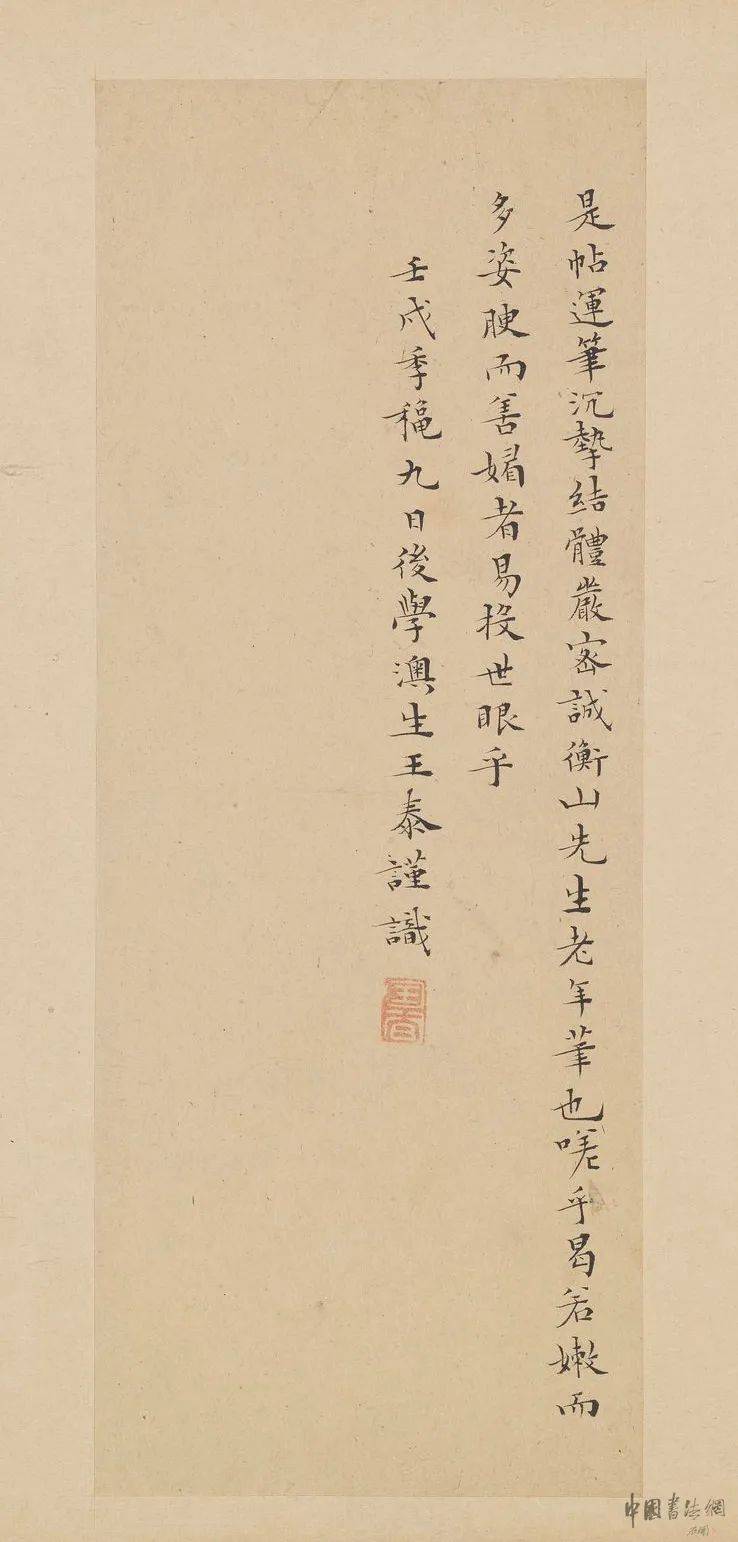 是帖運筆沉摯結體嚴密誠衡山先生老年筆也嗟乎曷若嫩而
多姿腴而善媚者易投世眼乎
壬戌季龝九日後學澳生王泰謹識
中国書法網